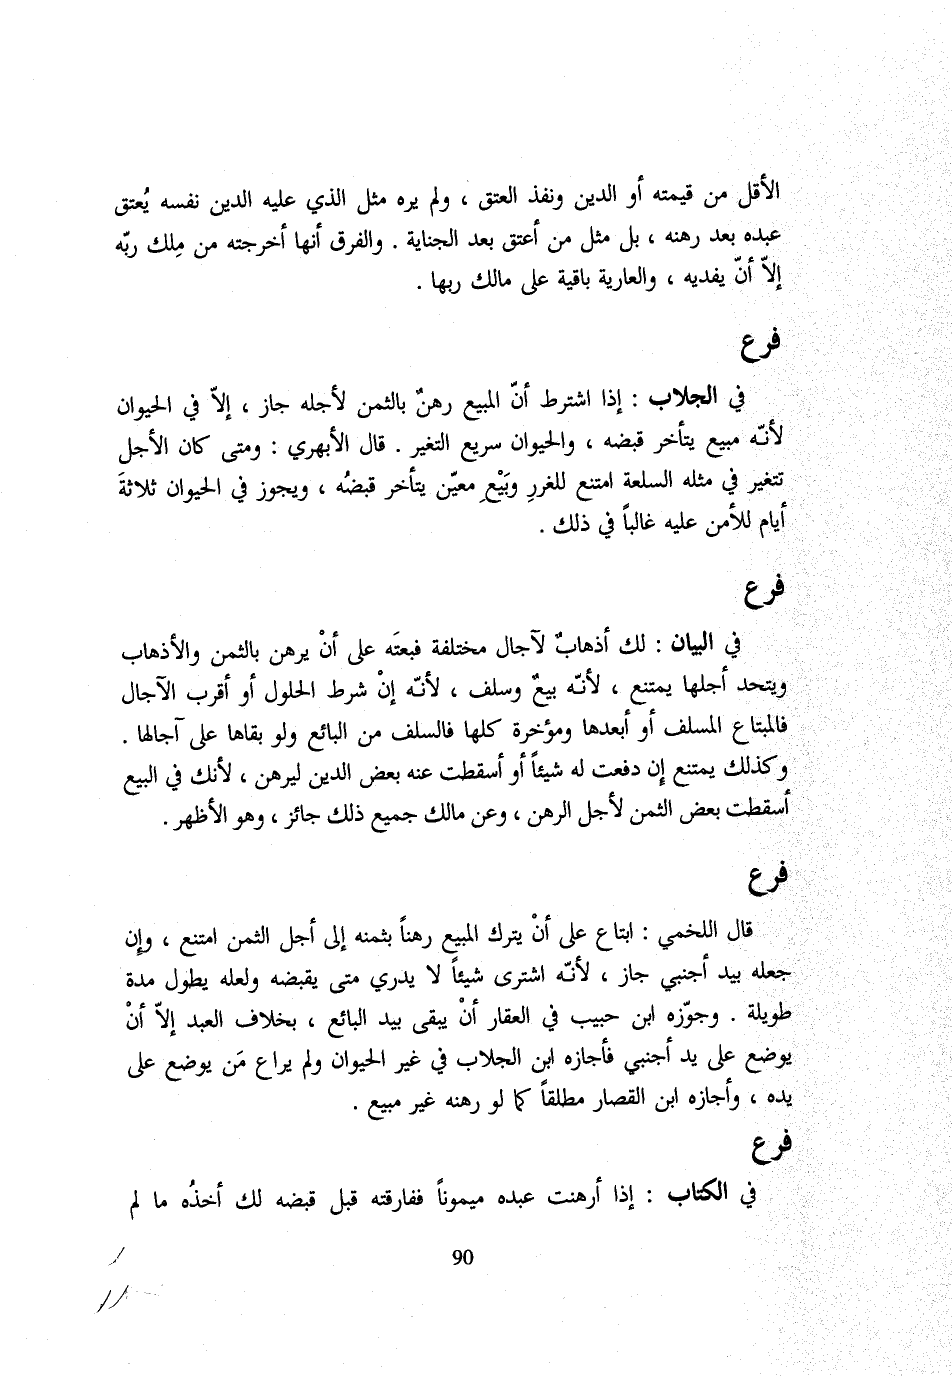 الأقل من قيمته أو الدين ونفذ العتق ، ولم يره مثل الذي عليه الدين نفسه يُعتق
عبده بعد رهنه ، بل مثل من أعتق بعد الجناية . والفرق أنها أخرجته من مِلك ربّه
إلاّ أنّ يفديه ، والعارية باقية على مالك ربها .
فرع
في الجلاب : إذا اشترط أنّ المبيع رهنٌ بالثمن لأجله جاز ، إلاّ في الحيوان
لأنّه مبيع يتأخر قبضه ، والحيوان سريع التغير . قال الأبهري : ومتى كان الأجل
تتغير في مثله السلعة امتنع للغررِ وبَيْعِ معيّن يتأخر قبضُه ، ويجوز في الحيوان ثلاثةَ
أيام للأمن عليه غالباً في ذلك .
فرع
في البيان : لك أذهابٌ لآجال مختلفة فبعتَه على أنْ يرهن بالثمن والأذهاب
ويتحد أجلها يمتنع ، لأنّه بيعٌ وسلف ، لأنّه إنْ شرط الحلول أو أقرب الآجال
فالمبتاع المسلف أو أبعدها ومؤخرة كلها فالسلف من البائع ولو بقاها على آجالها .
وكذلك يمتنع إن دفعت له شيئاً أو أسقطت عنه بعض الدين ليرهن ، لأنك في البيع
أسقطت بعض الثمن لأجل الرهن ، وعن مالك جميع ذلك جائز ، وهو الأظهر .
فرع
قال اللخمي : ابتاع على أنْ يترك المبيع رهناً بثمنه إلى أجل الثمن امتنع ، وإن
جعله بيد أجنبي جاز ، لأنّه اشترى شيئاً لا يدري متى يقبضه ولعله يطول مدة
طويلة . وجوّزه ابن حبيب في العقار أنْ يبقى بيد البائع ، بخلاف العبد إلاّ أنْ
يوضع على يد أجنبي فأجازه ابن الجلاب في غير الحيوان ولم يراع مَن يوضع على
يده ، وأجازه ابن القصار مطلقاً كما لو رهنه غير مبيع .
فرع
في الكتاب : إذا أرهنت عبده ميموناً ففارقته قبل قبضه لك أخذُه ما لم
90